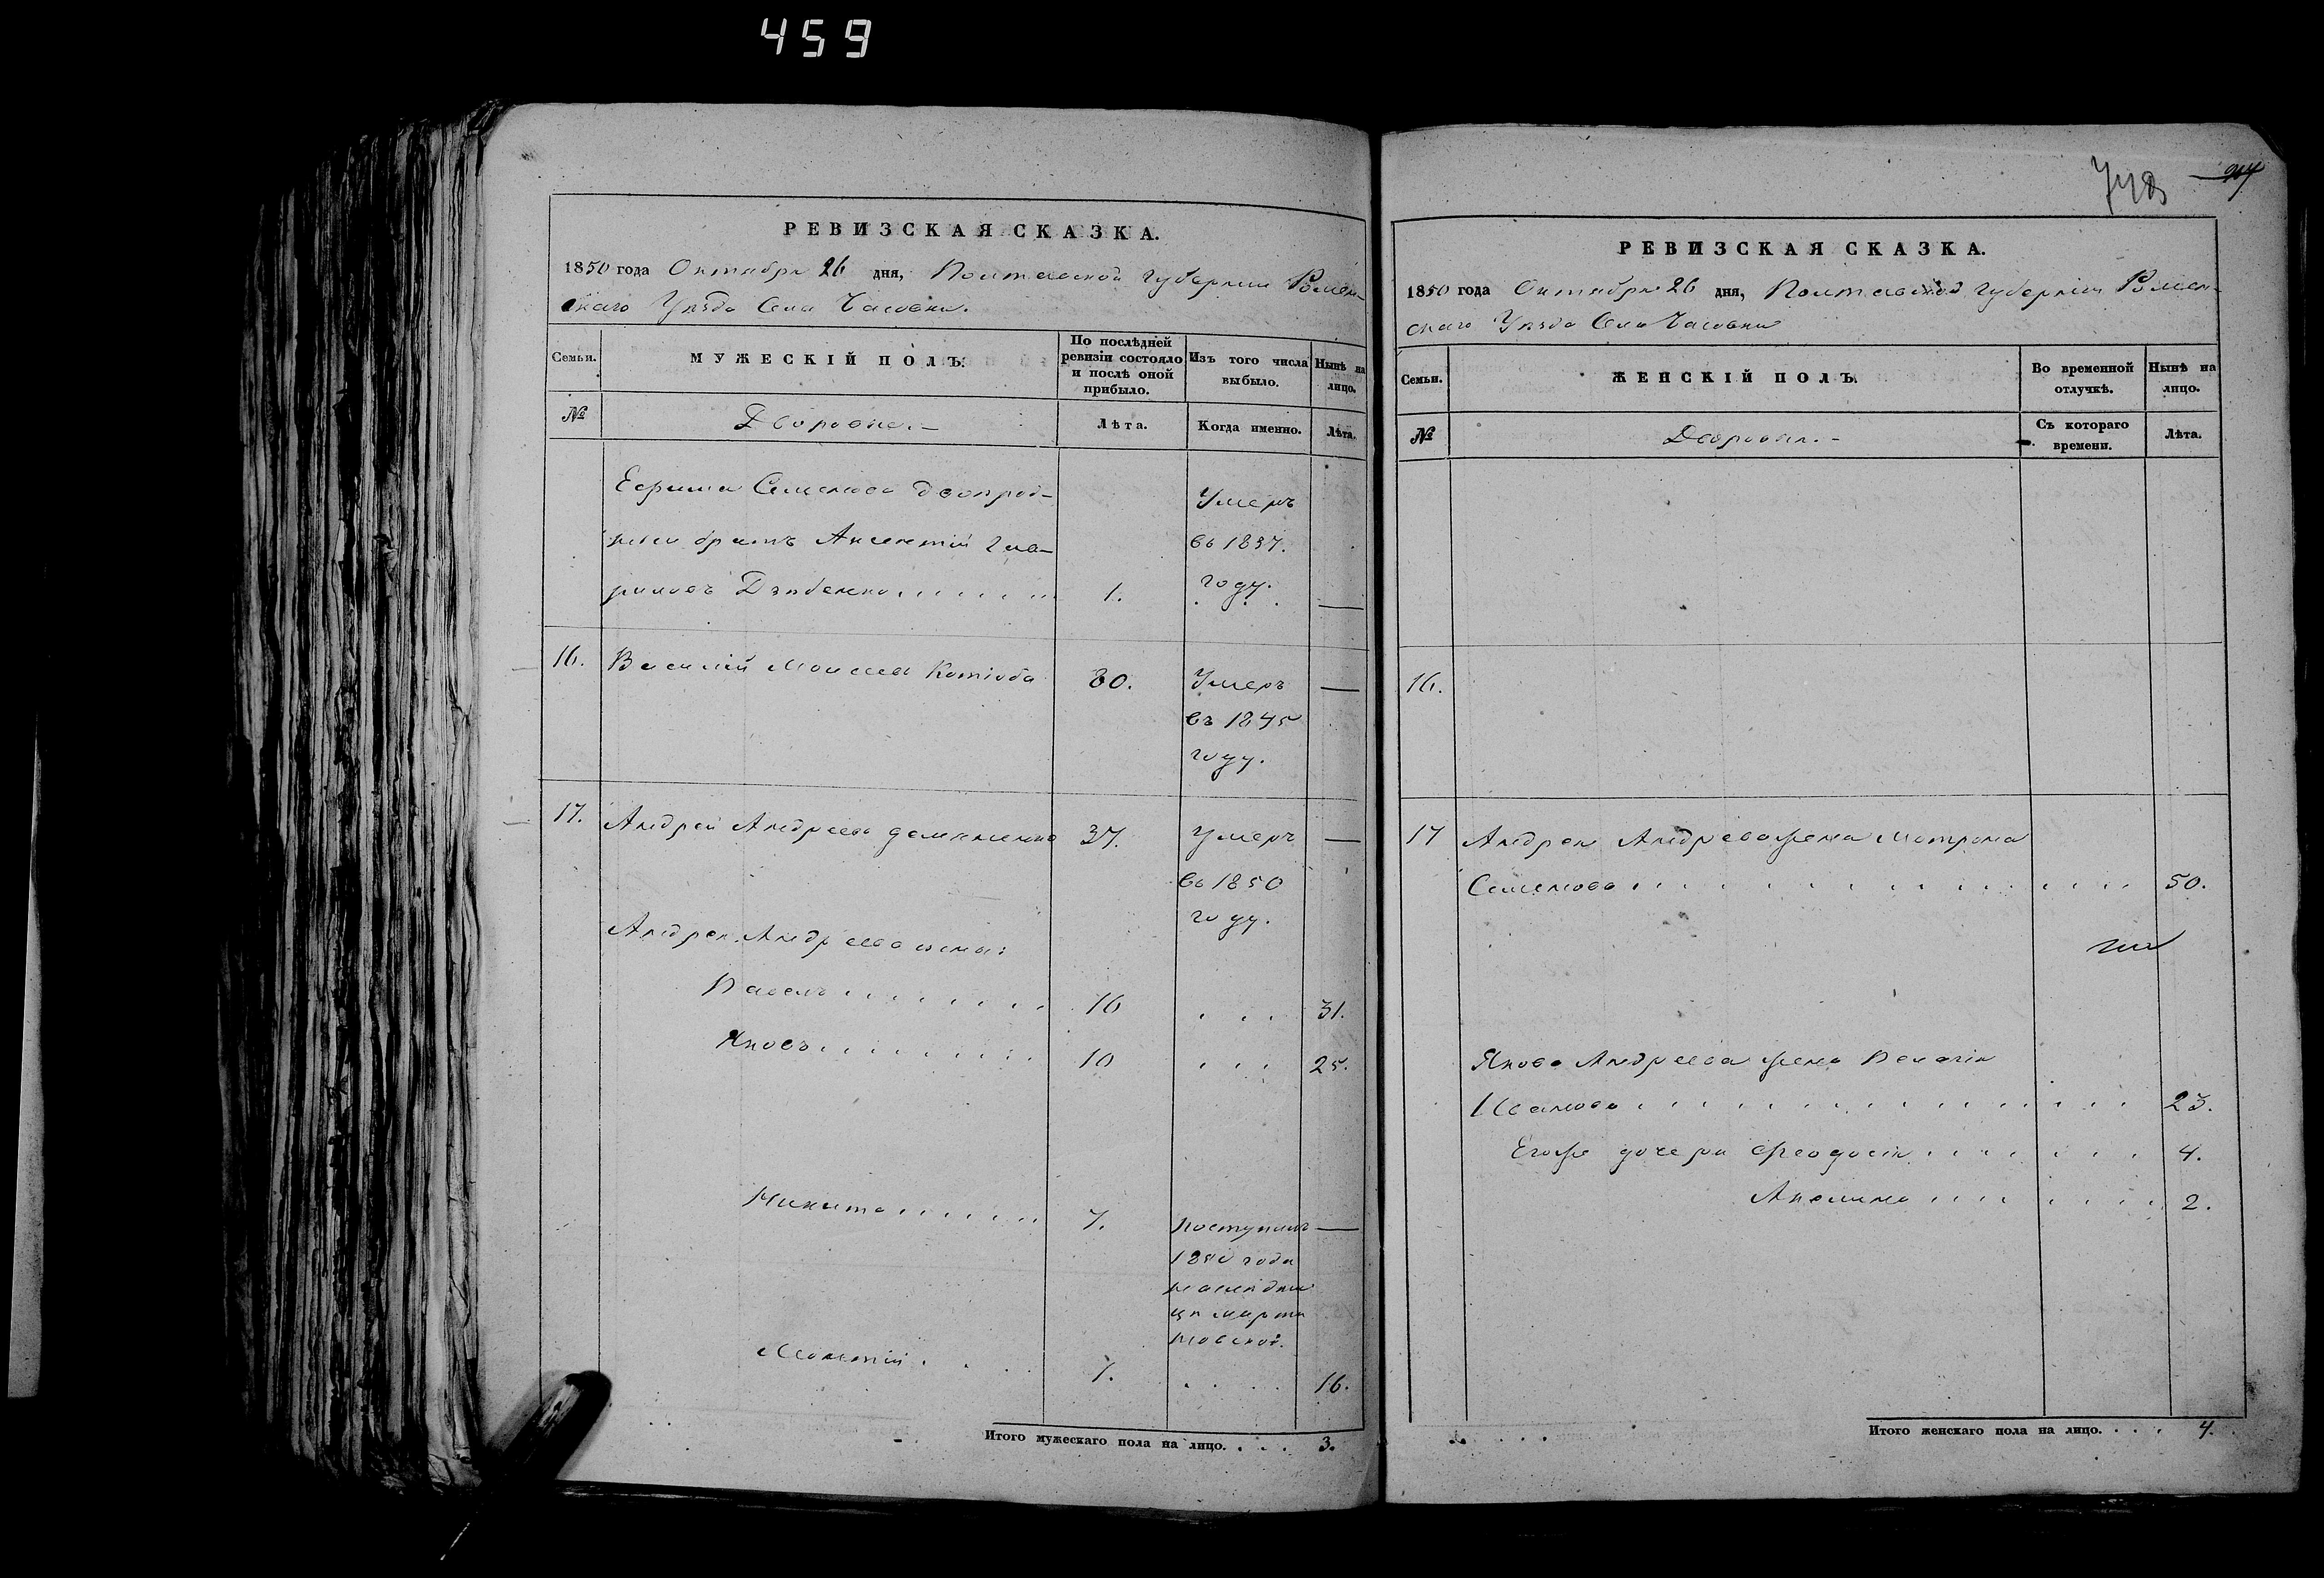 459
РЕВИЗСКАЯ СКАЗКА.
1850 года Октября 26 дня, Полтавской Губернии Ромен-
скаго Уѣзда Села Часовни.
Семьи.
МУЖЕСКІЙ ПОЛЪ.
По послѣдней ревизіи состояло и послѣ оной прибыло.
Изъ того числа выбыло.
Нынѣ на лицо.
№
Дворовые.-
Лѣта.
Когда именно.
Лѣта.
Ефима Семенова двоюрод-
ный братъ Аксентій
1.
Умеръ
въ 1837.
году.
16. Василій Моисеевъ
80. Умеръ —
въ 1845
году.
17. Андрей Андреевъ
37. Умеръ —
въ 1850
году.
Андрея Андреева сыны:
Павелъ 16 31.
Яковъ 10 25.
Никита 7. поступилъ —
1850 года
1. 16.
Итого мужескаго пола на лицо. . . . 3.
РЕВИЗСКАЯ СКАЗКА.
1850 года Октября 26 дня, Полтавской Губерніи Ромен-
скаго Уѣзда Села Часовни
Семьи.
ЖЕНСКІЙ ПОЛЪ.
Во временной отлучкѣ.
Нынѣ на лицо.
№
Дворовыя.-
Съ котораго времени.
Лѣта.
16.
17 Андрея Андреева жена Матрона
Семенова 50.
Якова Андреева жена Пелагія
Иванова 23.
Егожъ дочери Феодосія 4.
Акилина 2.
Итого женскаго пола на лицо. . . . 4.